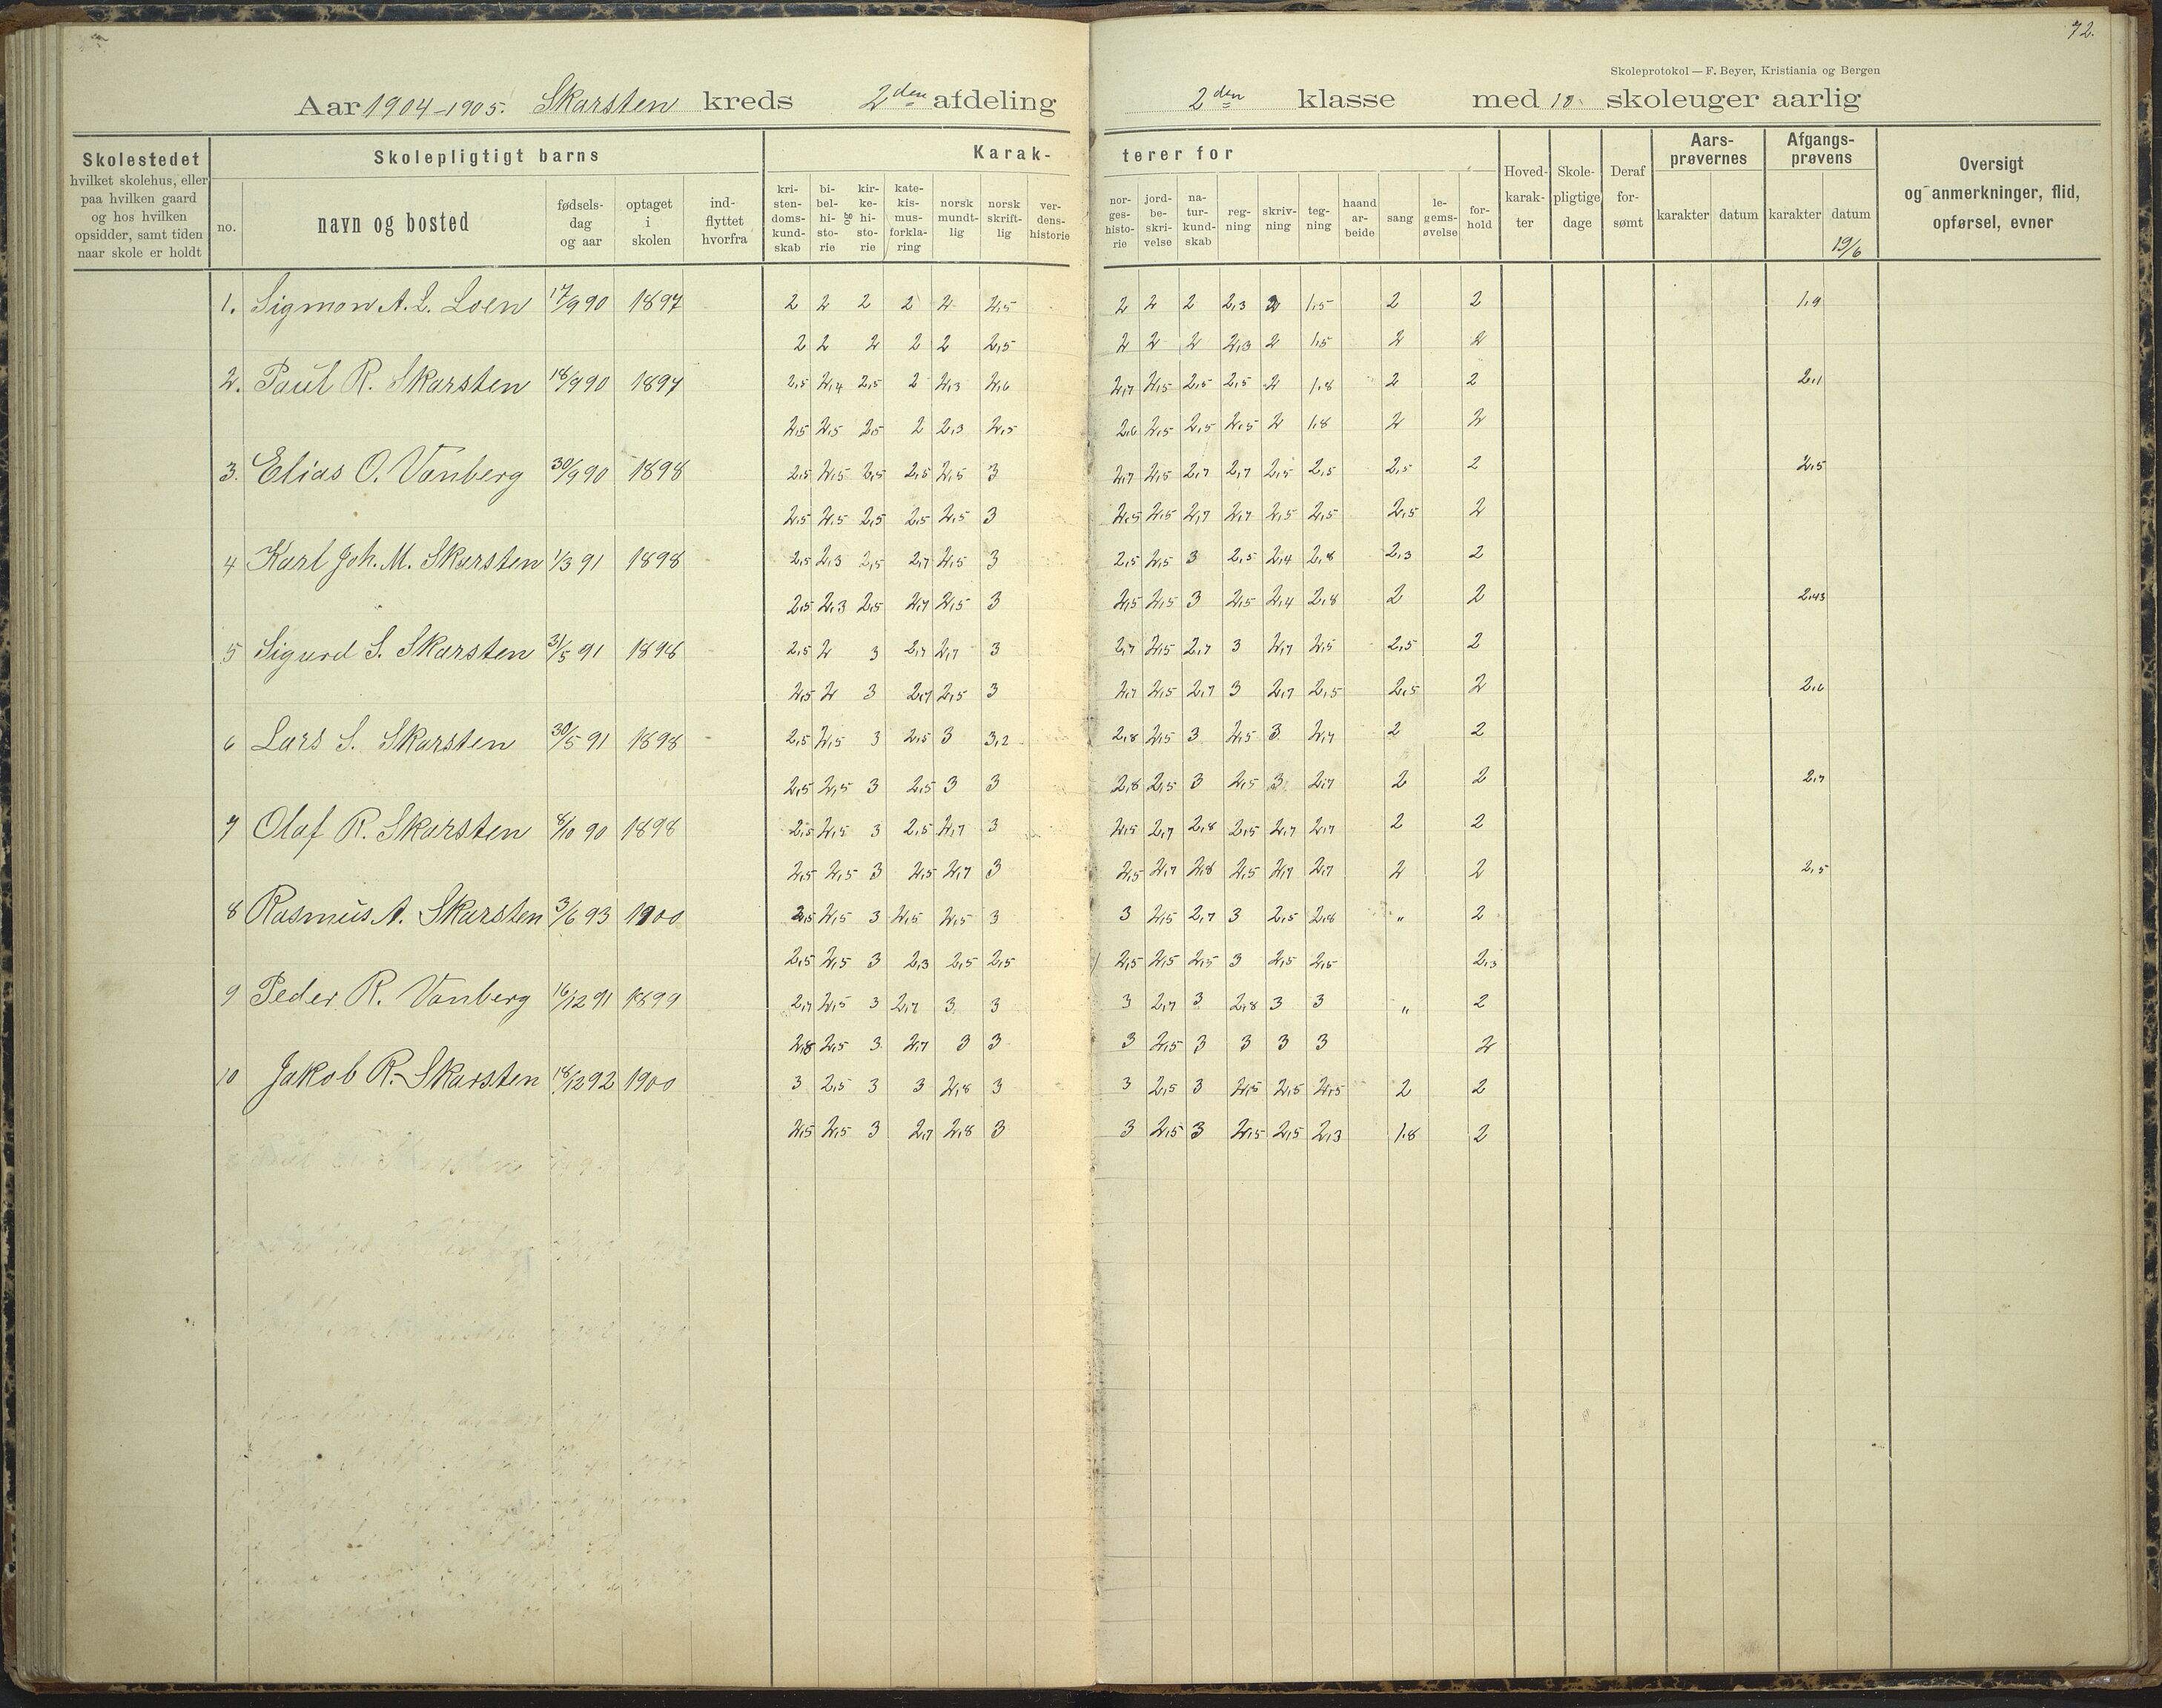 72.
Skoleprotokol — F. Beyer, Kristiania og Bergen
Aar 1904-1905. Skarsten kreds 2den afdeling 2den klasse med skoleuger aarlig
Skolestedet hvilket skolehus, eller paa hvilken gaard og hos hvilken opsidder, samt tiden naar skole er holdt
Skolepligtigt barns
no. navn og bosted fødsels-dag og aar optaget i skolen ind-flyttet hvorfra
Karak-terer for
kri-sten-doms-kund-skab bi-bel-hi-sto-rie og kir-ke-hi-sto-rie kate-kis-mus-forkla-ring norsk mundt-lig norsk skrift-lig ver-dens-historie
nor-ges-histo-rie jord-be-skri-velse na-tur-kund-skab reg-ning skriv-ning teg-ning haand ar-beide sang le-gems-øvelse for-hold
Hoved-karak-ter Skole-pligtige dage Deraf for-sømt
Aars-prøvernes karakter datum
Afgangs-prøvens karakter datum 19/6
Oversigt og anmerkninger, flid, opførsel, evner
1. Sigmon A. L. Loen 17/9 90 1897 2 2 2 2 2 2,5 2 2 2 2,3 2 1,5 2 2 1,9
2 2 2 2 2 2,5 2 2 2 2,3 2 1,5 2 2
2. Paul R. Skarsten 18/9 90 1897 2,5 2,4 2,5 2 2,3 2,6 2,7 2,5 2,5 2,5 2 1,8 2 2 2,1
2,5 2,5 2,5 2 2,3 2,5 2,6 2,5 2,5 2,5 2 1,8 2 2
3. Elias O. Vanberg 30/9 90 1898 2,5 2,5 2,5 2,5 2,5 3 2,7 2,5 2,7 2,7 2,5 2,5 2,5 2 2,5
2,5 2,5 2,5 2,5 2,5 3 2,5 2,5 2,7 2,7 2,5 2,5 2,5 2
4 Karl Joh. M. Skarsten 1/3 91 1898 2,5 2,3 2,5 2,7 2,5 3 2,5 2,5 3 2,5 2,4 2,8 2,3 2
2,5 2,3 2,5 2,7 2,5 3 2,5 2,5 3 2,5 2,4 2,8 2 2 2,43
5 Sigurd S. Skarsten 31/5 91 1898 2,5 2 3 2,7 2,7 3 2,7 2,5 2,7 3 2,7 2,5 2,5 2
2,5 2 3 2,7 2,5 3 2,7 2,5 2,7 3 2,7 2,5 2,5 2 2,6
6 Lars S. Skarsten 30/5 91 1898 2,5 2,5 3 2,5 3 3,2 2,8 2,5 3 2,5 3 2,7 2 2
2,5 2,5 3 2,5 3 3 2,8 2,5 3 2,5 3 2,7 2 2 2,7
7 Olaf R. Skarsten 8/10 90 1898 2,5 2,5 3 2,5 2,7 3 2,5 2,7 2,8 2,5 2,7 2,7 2 2
2,5 2,5 3 2,5 2,7 3 2,5 2,7 2,8 2,5 2,7 2,7 2 2 2,5
8 Rasmus A. Skarsten 3/6 93 1900 2,5 2,5 3 2,5 2,5 3 3 2,5 2,7 3 2,5 2,8 " 2
2,5 2,5 3 2,3 2,5 2,5 2,5 2,5 2,5 3 2,5 2,5 2,3
9 Peder R. Vanberg 16/12 91 1899 2,7 2,5 3 2,7 3 3 3 2,7 3 2,8 3 3 " 2
2,8 2,5 3 2,7 3 3 3 2,5 3 3 3 3 2
10 Jakob R. Skarsten 18/12 92 1900 3 2,5 3 3 2,8 3 3 2,5 3 2,5 2,5 2,5 2 2
2,5 2,5 3 2,7 2,8 3 3 2,5 3 2,5 2,5 2,3 1,8 2